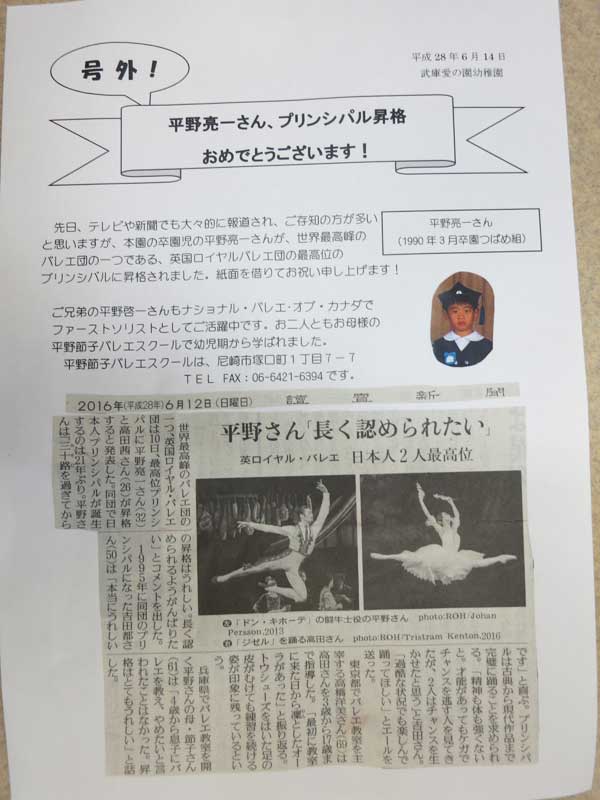 号外！
平成28年6月14日
武庫愛の園幼稚園
平野亮一さん、プリンシパル昇格
おめでとうございます！
先日、テレビや新聞でも大々的に報道され、ご存知の方が多い
と思いますが、本園の卒園児の平野亮一さんが、世界最高峰の
バレエ団の一つである、英国ロイヤルバレエ団の最高位の
プリンシパルに昇格されました。紙面を借りてお祝い申し上げます！
平野亮一さん
（1990年3月卒園つばめ組）
ご兄弟の平野啓一さんもナショナル・バレエ・オブ・カナダで
ファーストソリストとしてご活躍中です。お二人ともお母様の
平野節子バレエスクールで幼児期から学ばれました。
平野節子バレエスクールは、尼崎市塚口町1丁目7－7
ＴＥＬ FAX：06-6421-6394です。
2016年(平成28年)6月12日(日曜日)
讀賣新聞
平野さん「長く認められたい」
英ロイヤル・バレエ 日本人2人最高位
世界最高峰のバレエ団の
一つ、英国ロイヤル・バレエ
団は10日、最高位プリンシ
パルに平野亮一さん(32)
と高田茜さん(26)が昇格
すると発表した。同団で日
本人プリンシパルが誕生
するのは21年ぶり。平野さ
んは「三十路を過ぎてから
の昇格はうれしい。長く認
められるようがんばりた
い」とコメントを出した。
1995年に同団のプリ
ンシパルになった吉田都さ
ん(50)は「本当にうれしい
左「ドン・キホーテ」の闘牛士役の平野さん photo:ROH/Johan
Persson.2013
右「ジゼル」を踊る高田さん photo:ROH/Tristram Kenton.2016
です」と喜ぶ。プリンシパ
ルは古典から現代作品まで
完璧に踊ることを求められ
る。「精神も体も強くない
と。才能があってもケガで
チャンスを逃す人を見てき
たが、2人はチャンスを生
かせたと思う」と吉田さん。
「過酷な状況でも楽しんで
踊ってほしい」とエールを
送った。
東京都でバレエ教室を主
宰する高橋洋美さん(69)は
高田さんを3歳から17歳ま
で指導した。「最初に教室
に来た日から凛としたオー
ラがあった」と振り返る。
トウシューズをはいた足の
皮がむけても練習を続ける
姿が印象に残っているとい
う。
兵庫県でバレエ教室を開
く平野さんの母・節子さん
(61)は「4歳から息子にバ
レエを教え、やめたいと言
われたことはなかった。昇
格はとてもうれしい」と話
した。